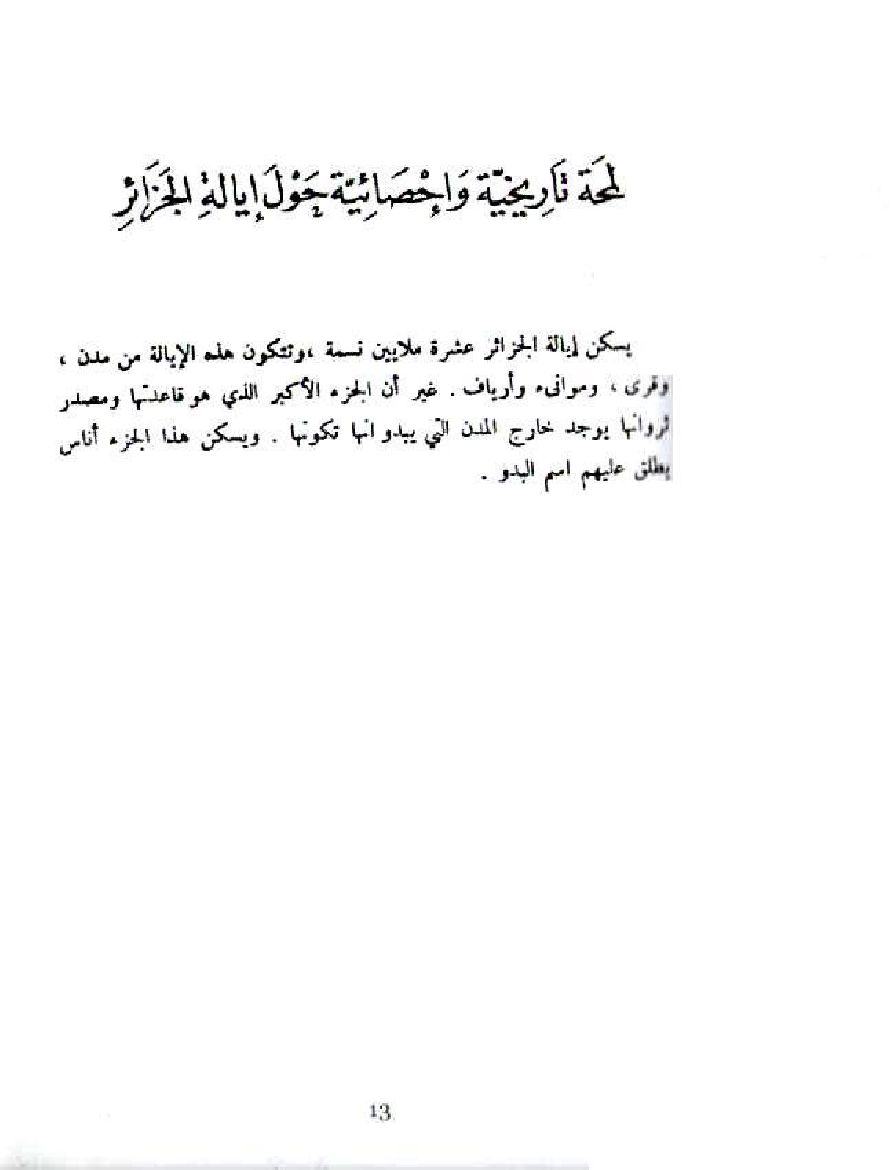 لمحَة تَارِيخيّة وَاحْصَائِيّة حَوْلَ إيالةِ الجَزَائرِ
يسكن إيالة الجزائر عشرة ملايين نسمة ،وتتكون هذه الإيالة من مدن ،
وقرى ، وموانىء وأرياف . غير أن الجزء الأكبر الذي هو قاعدتها ومصدر
ثرواتها يوجد خارج المدن التي يبدو انها تكونها . ويسكن هذا الجزء أناس
يطلق عليهم اسم البدو .
13